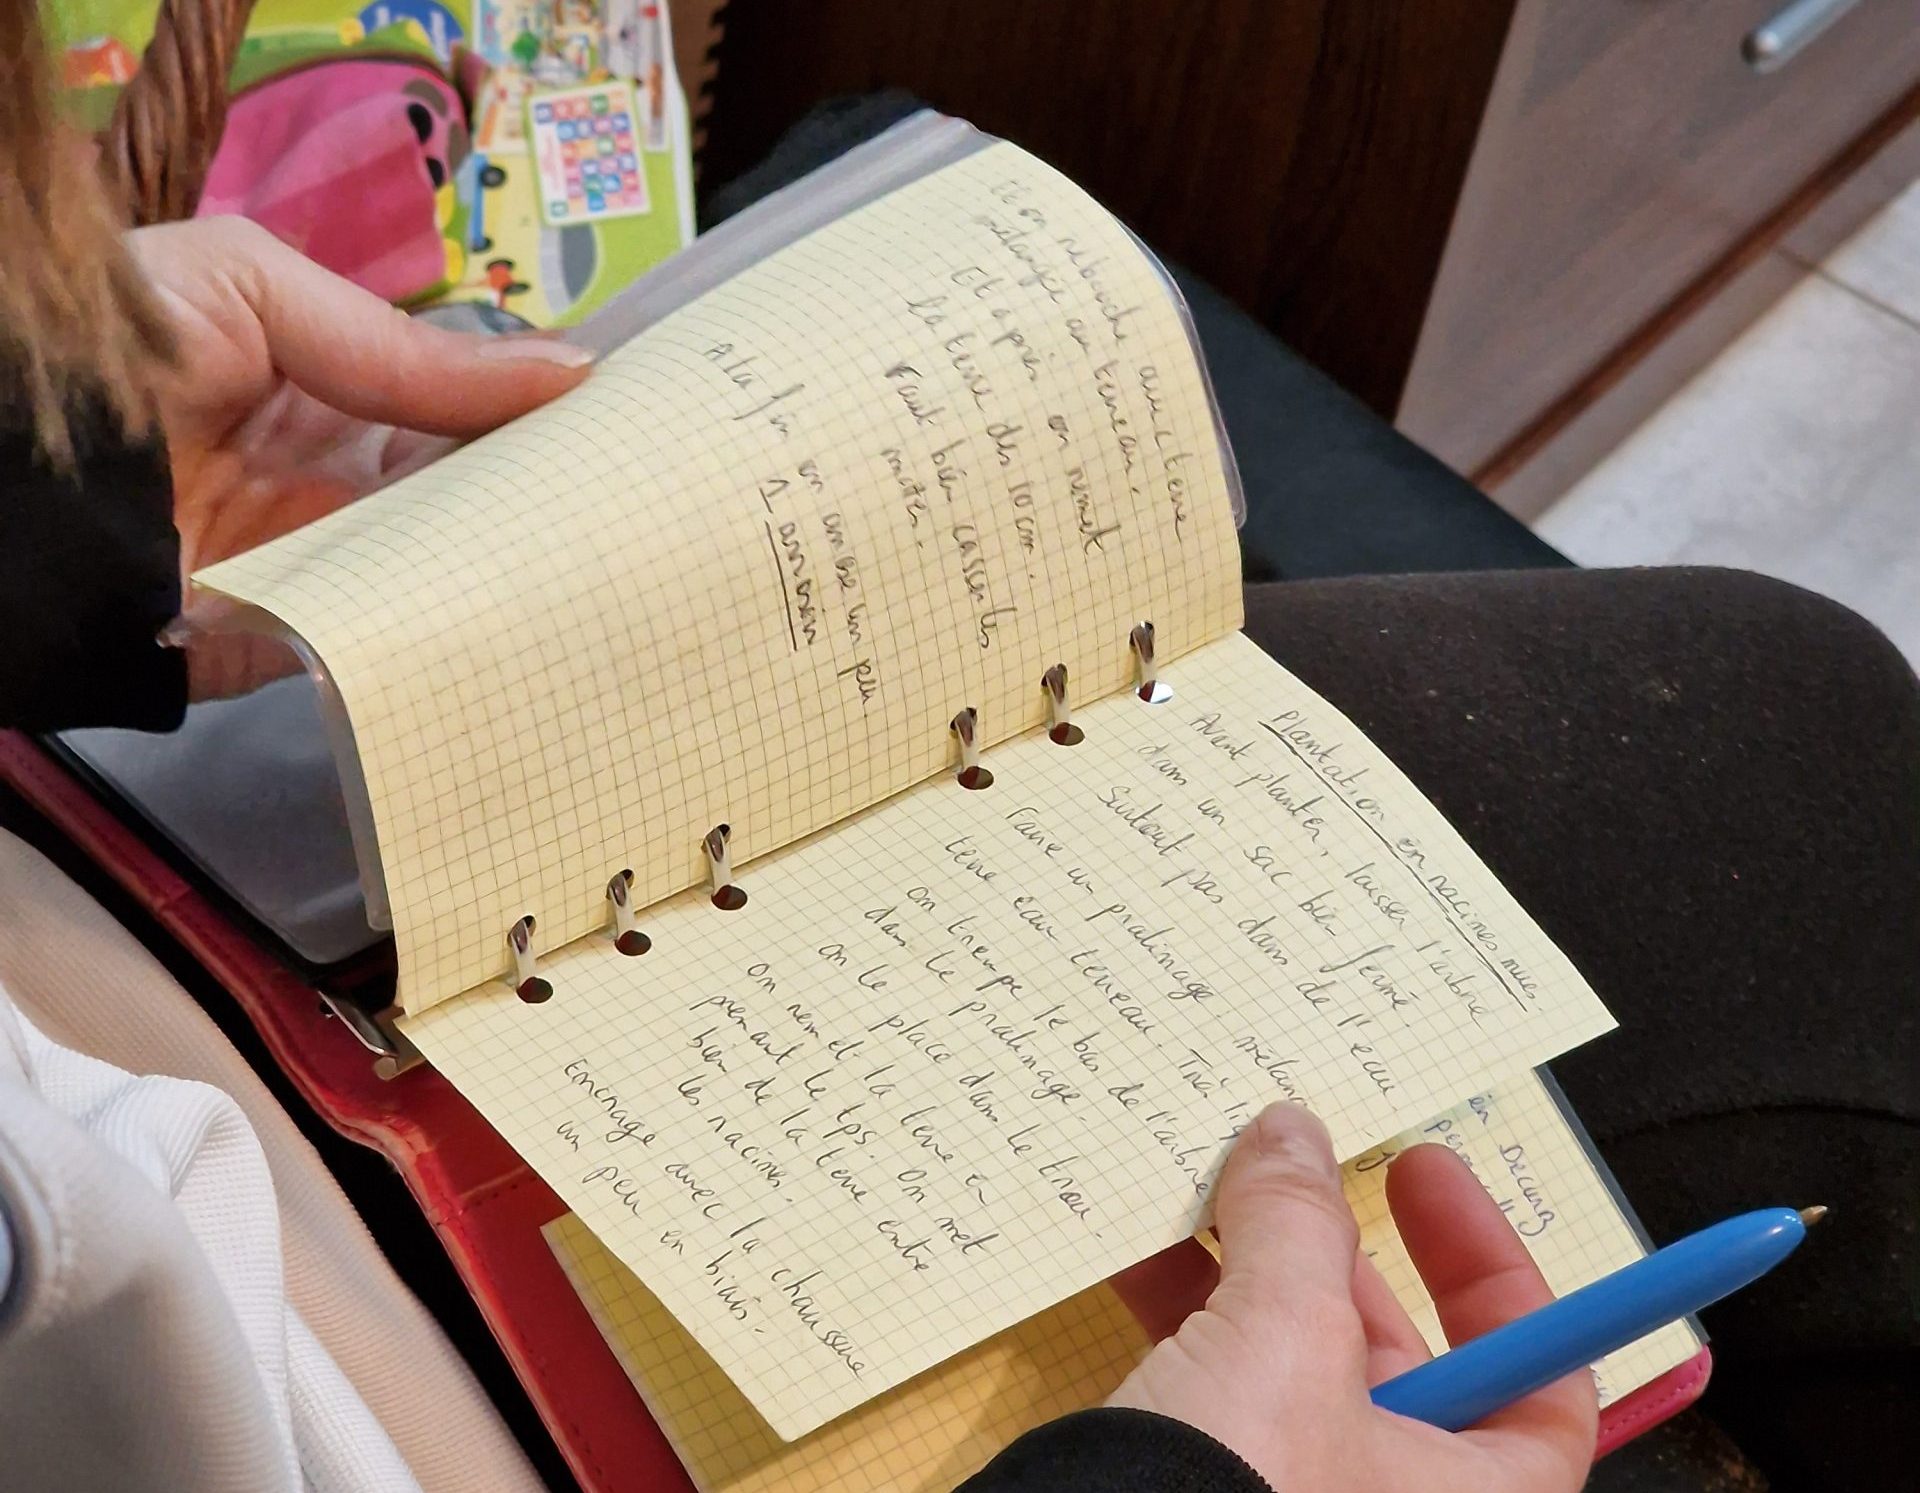 Et on rebouche avec terre
mélangée au terreau.
Et après on remet
la terre des 10 cm.
Faut bien casser les
mottes.
A la fin on arrose un peu
1 arrosoir
Plantation en racines nues.
Avant planter, laisser l'arbre
dans un sac bien fermé.
Surtout pas dans de l'eau.
Faire un pralinage. mélang
terre eau terreau. Très liq
on trempe le bas de l'arbre
dans le pralinage.
on le place dans le trou.
on remet la terre en
prenant le tps. On met
bien de la terre entre
les racines.
Encrage avec la chaussure
un peu en biais.